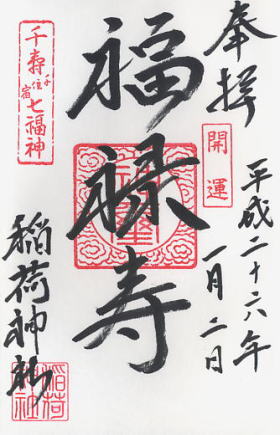 奉拝
開運
平成二十六年
一月二日
福禄寿
千寿七福神
千住宿
稲荷神社
稲荷神社